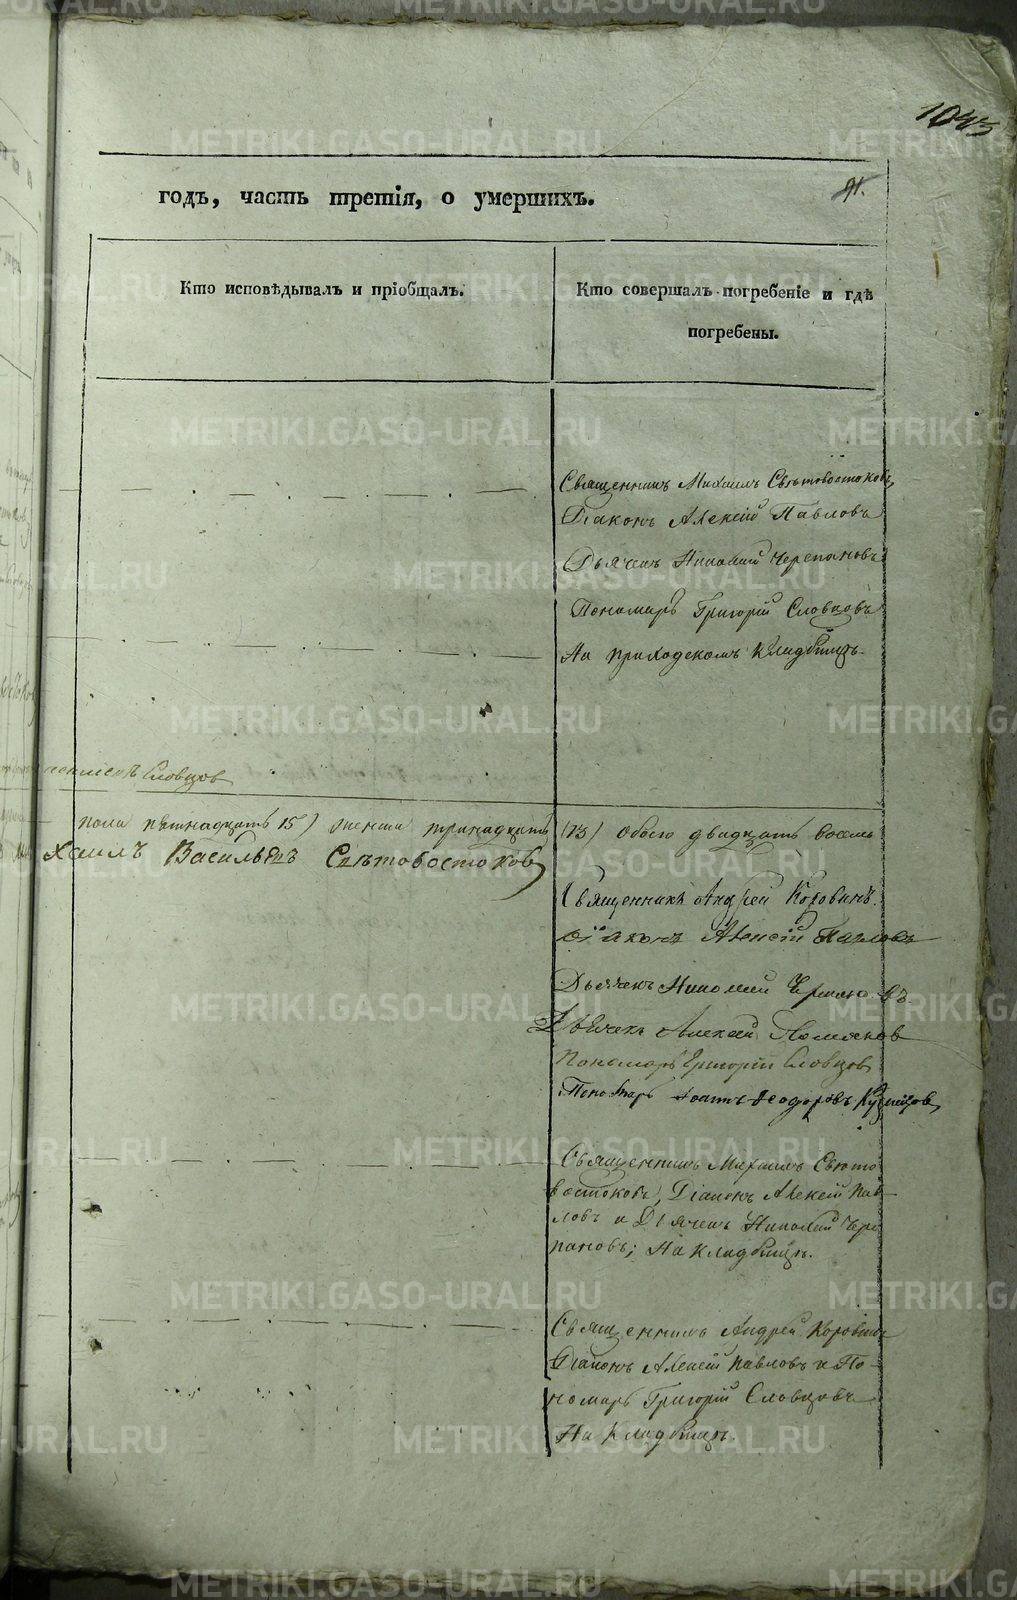 1033
91.
годъ, часть третія, о умершихъ.
Кто исповѣдывалъ и пріобщалъ.
Кто совершалъ погребеніе и гдѣ
погребены.
Священникъ Михаилъ Свѣтовостоковъ,
Діаконъ Алексій Павловъ
Дьячекъ Николай Черепановъ
Пономарь Григорій Словцовъ
На приходскомъ кладбищѣ.
Словцов
пола пятнадцать 15) женска тринадцать (13) обоего двадцать восемь
хаилъ Васильевъ Свѣтовостоков
Священникъ Андрей Коровинъ.
Діаконъ Алексій Павловъ
Дьячекъ Николай
Дьячекъ Алексей
Пономарь Григорій Словцов
Пономарь Іоаннъ Ѳеодоровъ Кузнецов,
Священникъ Михаилъ Свѣто
востоковъ, Діаконъ Алексій Пав-
ловъ и Дьячекъ Николай Чере
пановъ; На кладбищѣ.
Священникъ Андрей Коровинъ
Діаконъ Алексій Павловъ и По-
номарь Григорій Словцовъ
На кладбищѣ.
METRIKI.GASO-URAL.RU